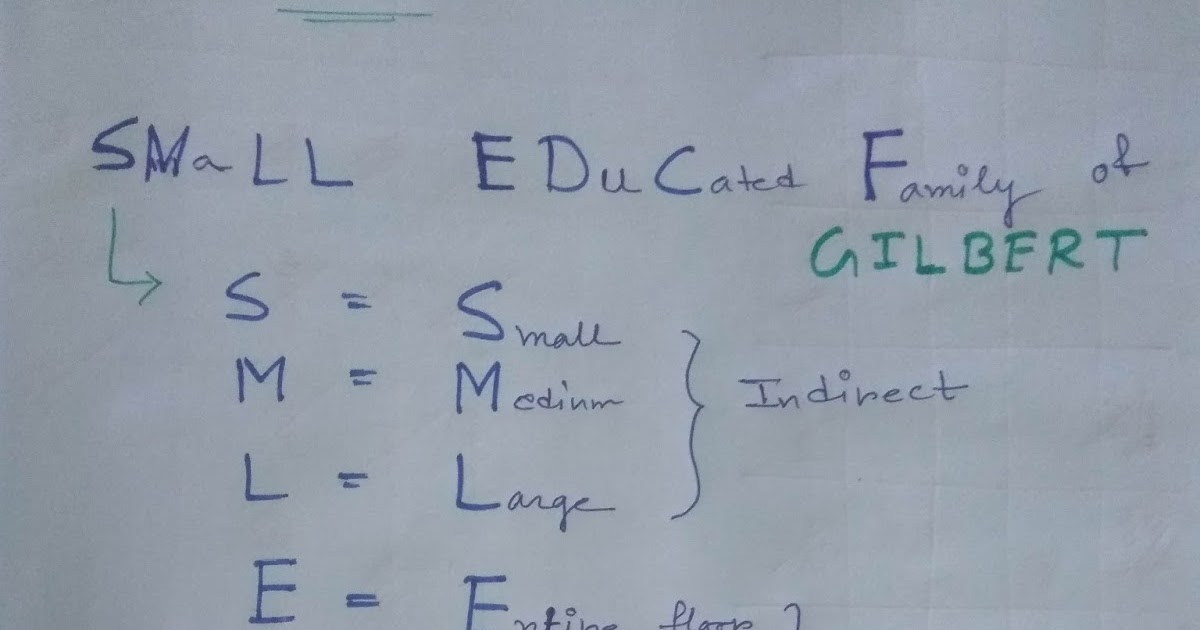 SMaLL EDuCated Family of
GILBERT
S = Small
M = Medium
L = Large
} Indirect
E = Entire floor }